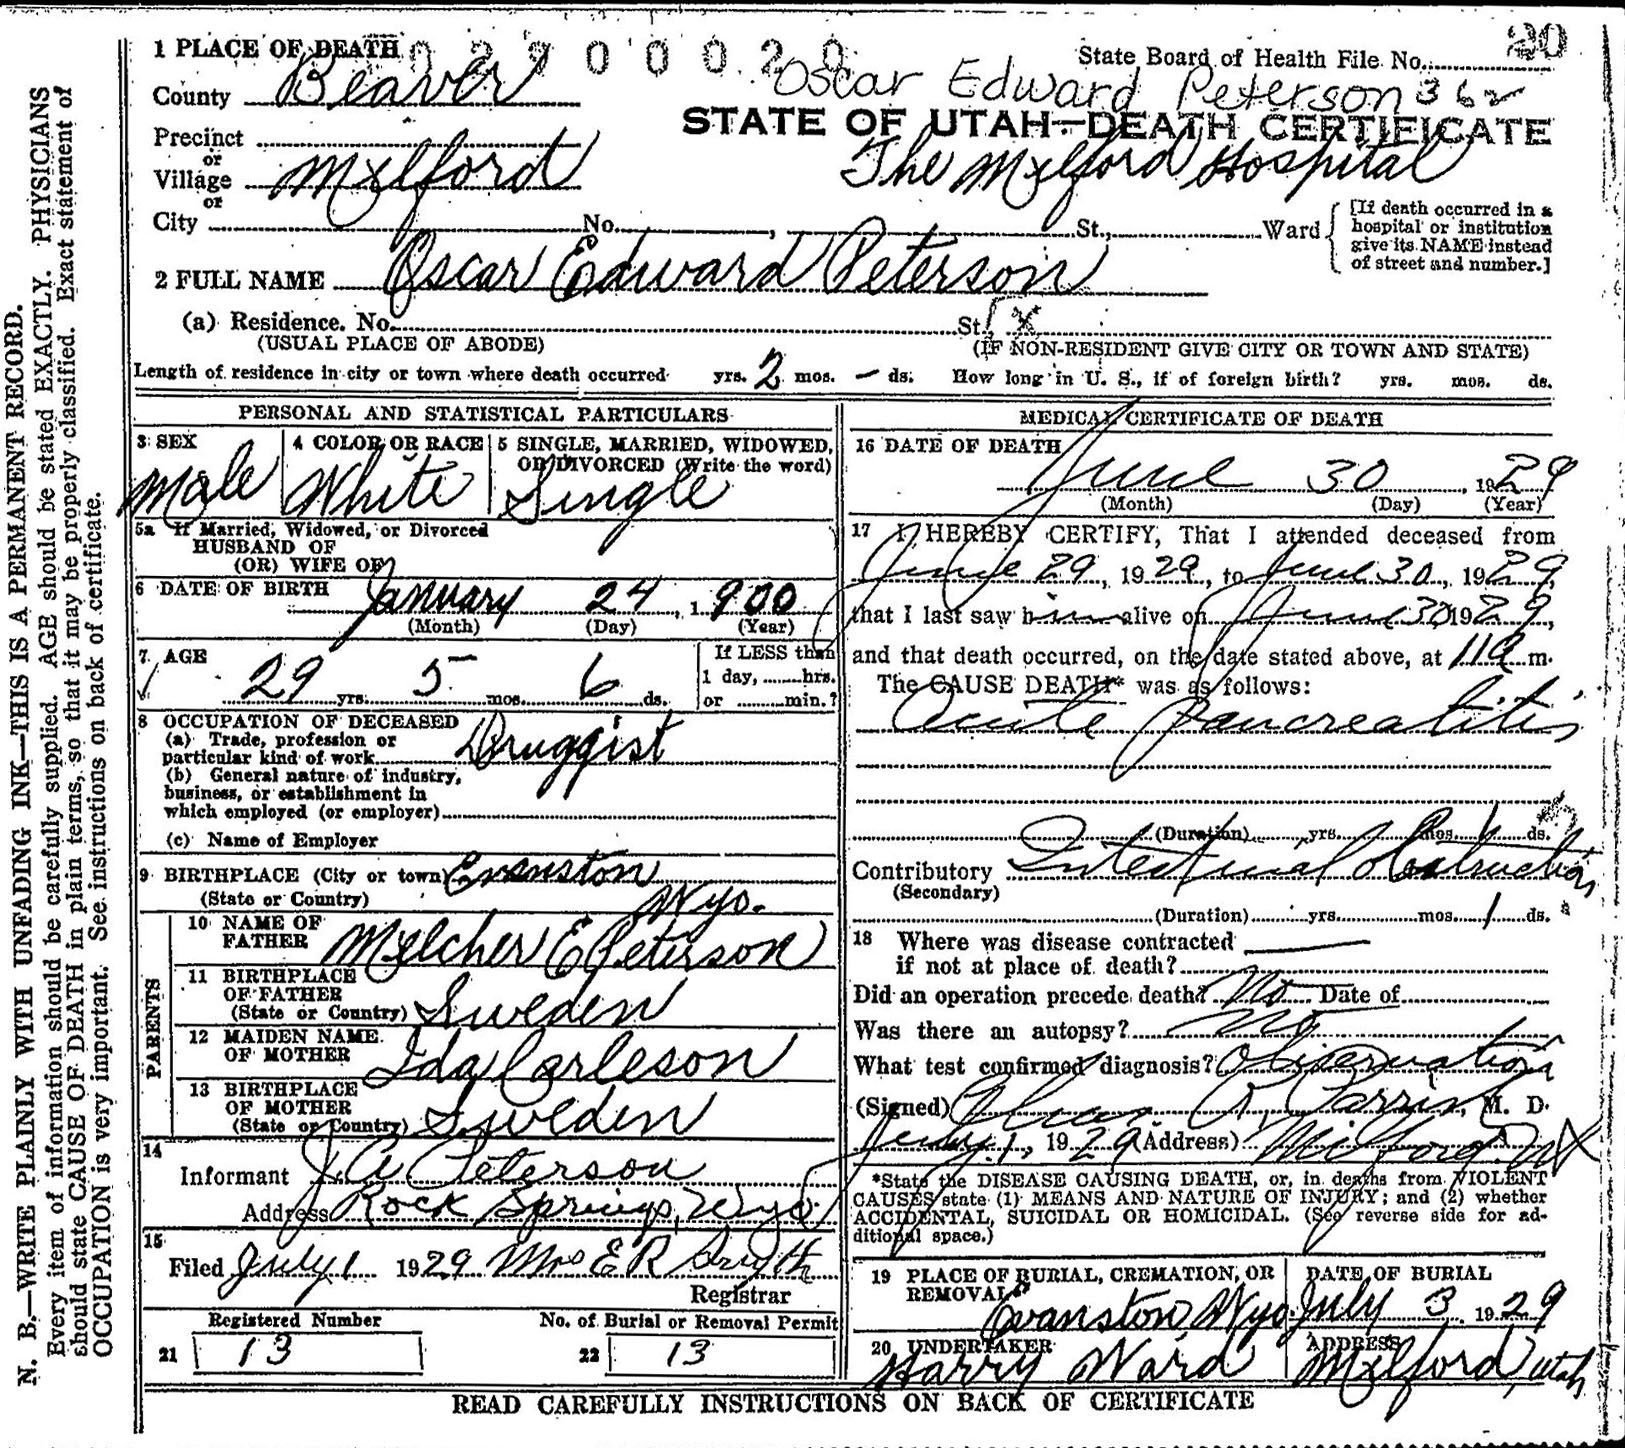 N. B.—WRITE PLAINLY WITH UNFADING INK—THIS IS A PERMANENT RECORD.
Every item of information should be carefully supplied. AGE should be stated EXACTLY. PHYSICIANS
should state CAUSE OF DEATH in plain terms, so that it may be properly classified. Exact statement of
OCCUPATION is very important. See instructions on back of certificate.
1 PLACE OF DEATH
State Board of Health File No. 20
County Beaver
Oscar Edward Peterson 362
STATE OF UTAH—DEATH CERTIFICATE
Precinct
or
The Milford Hospital
Village Milford
or
City No. , St., Ward
[If death occurred in a
hospital or institution
give its NAME instead
of street and number.]
2 FULL NAME Oscar Edward Peterson
(a) Residence. No. St. X
(USUAL PLACE OF ABODE) (IF NON-RESIDENT GIVE CITY OR TOWN AND STATE)
Length of residence in city or town where death occurred yrs. 2 mos. — ds. How long in U. S., if of foreign birth? yrs. mos. ds.
PERSONAL AND STATISTICAL PARTICULARS
3 SEX
Male
4 COLOR OR RACE
White
5 SINGLE, MARRIED, WIDOWED,
OR DIVORCED (Write the word)
Single
5a If Married, Widowed, or Divorced
HUSBAND OF
(OR) WIFE OF
6 DATE OF BIRTH January 24, 1900
(Month) (Day) (Year)
7 AGE
29 yrs. 5 mos. 6 ds.
If LESS than
1 day, hrs.
or min.?
8 OCCUPATION OF DECEASED
(a) Trade, profession or
particular kind of work Druggist
(b) General nature of industry,
business, or establishment in
which employed (or employer)
(c) Name of Employer
9 BIRTHPLACE (City or town) Evanston
(State or Country) Wyo.
PARENTS
10 NAME OF
FATHER Melcher E Peterson
11 BIRTHPLACE
OF FATHER
(State or Country) Sweden
12 MAIDEN NAME
OF MOTHER Ida Carleson
13 BIRTHPLACE
OF MOTHER
(State or Country) Sweden
14
Informant J. A. Peterson
Address Rock Springs, Wyo
15
Filed July 1 1929 Mrs E R Smyth
Registrar
Registered Number
21 13
No. of Burial or Removal Permit
22 13
MEDICAL CERTIFICATE OF DEATH
16 DATE OF DEATH
June 30, 1929
(Month) (Day) (Year)
17 I HEREBY CERTIFY, That I attended deceased from
June 29, 1929, to June 30, 1929,
that I last saw him alive on June 30 1929,
and that death occurred, on the date stated above, at 11 a m.
The CAUSE DEATH* was as follows:
Acute Pancreatitis
(Duration) yrs. mos. 1 ds.
Contributory Intestinal obstruction
(Secondary)
(Duration) yrs. mos. 1 ds.
18 Where was disease contracted
if not at place of death?
Did an operation precede death? No Date of
Was there an autopsy? No
What test confirmed diagnosis? Observation
(Signed) R. Parrish, M. D.
July 1, 1929 (Address) Milford Ut
*State the DISEASE CAUSING DEATH, or, in deaths from VIOLENT
CAUSES state (1) MEANS AND NATURE OF INJURY; and (2) whether
ACCIDENTAL, SUICIDAL OR HOMICIDAL. (See reverse side for ad-
ditional space.)
19 PLACE OF BURIAL, CREMATION, OR
REMOVAL
Evanston Wyo.
DATE OF BURIAL
July 3 1929
20 UNDERTAKER
Harry Ward
ADDRESS
Milford, Utah
READ CAREFULLY INSTRUCTIONS ON BACK OF CERTIFICATE